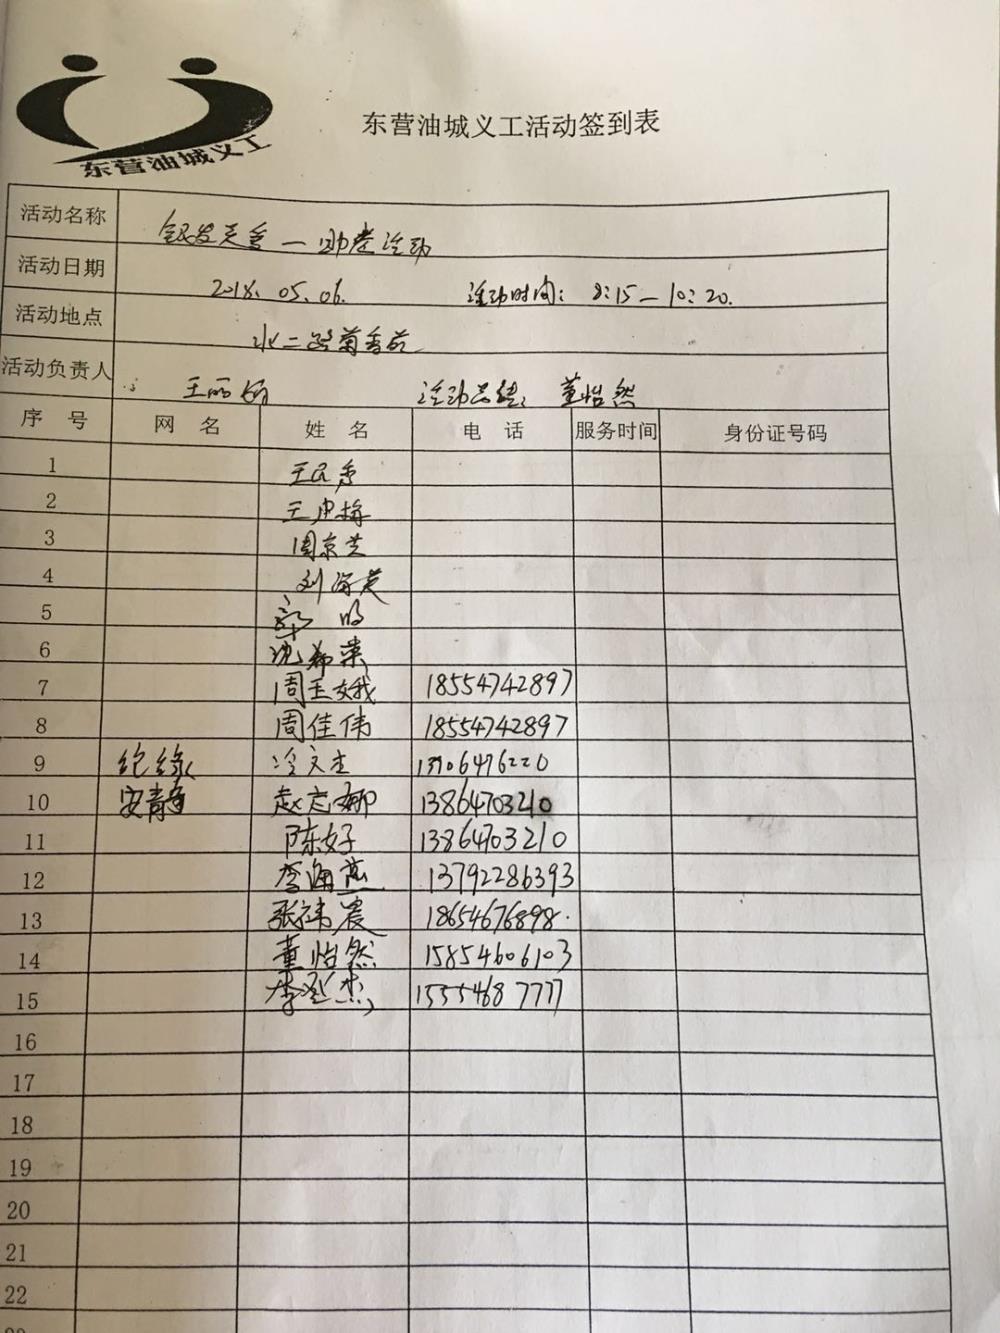 东营油城义工
东营油城义工活动签到表
活动名称 银发关爱一助老活动
活动日期 2018.05.06. 活动时间：8:15—10:20.
活动地点 水二路菊香苑
活动负责人 王丽 活动总结： 董怡然
序 号 网 名 姓 名 电 话 服务时间 身份证号码
1 王民
2 王忠梅
3 周京芝
4 刘海英
5 郭
6 沈
7 周玉娥 18554742897
8 周佳伟 18554742897
9 绝缘 冷文杰 13706476220
10 安静 赵志娜 13864703210
11 陈好 13864703210
12 李海燕 13792286393
13 张祎晨 18654676898.
14 董怡然 15854606103
15 李 杰 15554687777
16
17
18
19
20
21
22
23